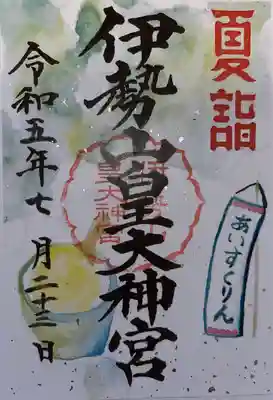 夏詣
伊勢山皇大神宮
令和五年七月二十三日
あいすくりん